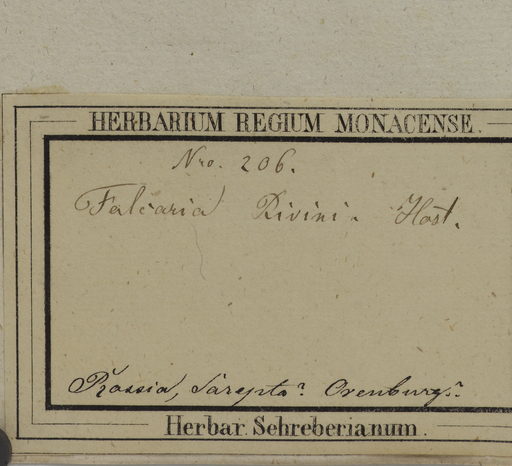 HERBARIUM REGIUM MONACENSE.
Nro. 206.
Falcaria Rivini. Host.
Rossia, Sarepta? Orenburg?.
Herbar. Schreberianum.